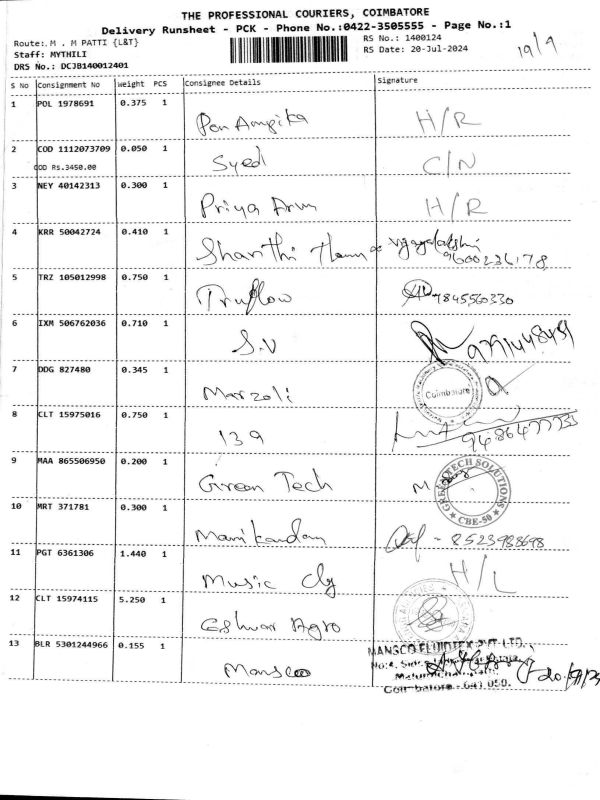 THE PROFESSIONAL COURIERS, COIMBATORE
Delivery Runsheet - PCK - Phone No.:0422-3505555 - Page No.:1
Route:.M . M PATTI {L&T}
RS No.: 1400124
Staff: MYTHILI
RS Date: 20-Jul-2024
19/9
DRS No.: DCJB140012401
S No Consignment No Weight PCS Consignee Details Signature
1 POL 1978691 0.375 1
H/R
2 COD 1112073709 0.050 1
COD Rs.3450.00 Syed C/N
3 NEY 40142313 0.300 1
Priya Arun H/R
4 KRR 50042724 0.410 1
Shanthi Vijayalakshmi
9600236178
5 TRZ 105012998 0.750 1
Truflow 9845560330
6 IXM 506762036 0.710 1
S.V 9791448451
7 DDG 827480 0.345 1
Marzoli Coimbatore
8 CLT 15975016 0.750 1
139 9486477733
9 MAA 865506950 0.200 1
Green Tech
GREENTECH SOLUTIONS
CBE-50
10 MRT 371781 0.300 1
Manikandan 8523988698
11 PGT 6361306 1.440 1
Music Cly H/L
12 CLT 15974115 5.250 1
Eshwar Agro
13 BLR 5301244966 0.155 1
Mansco
MANSCO FLUIDTEX PVT. LTD.,
Coimbatore - 641 050.